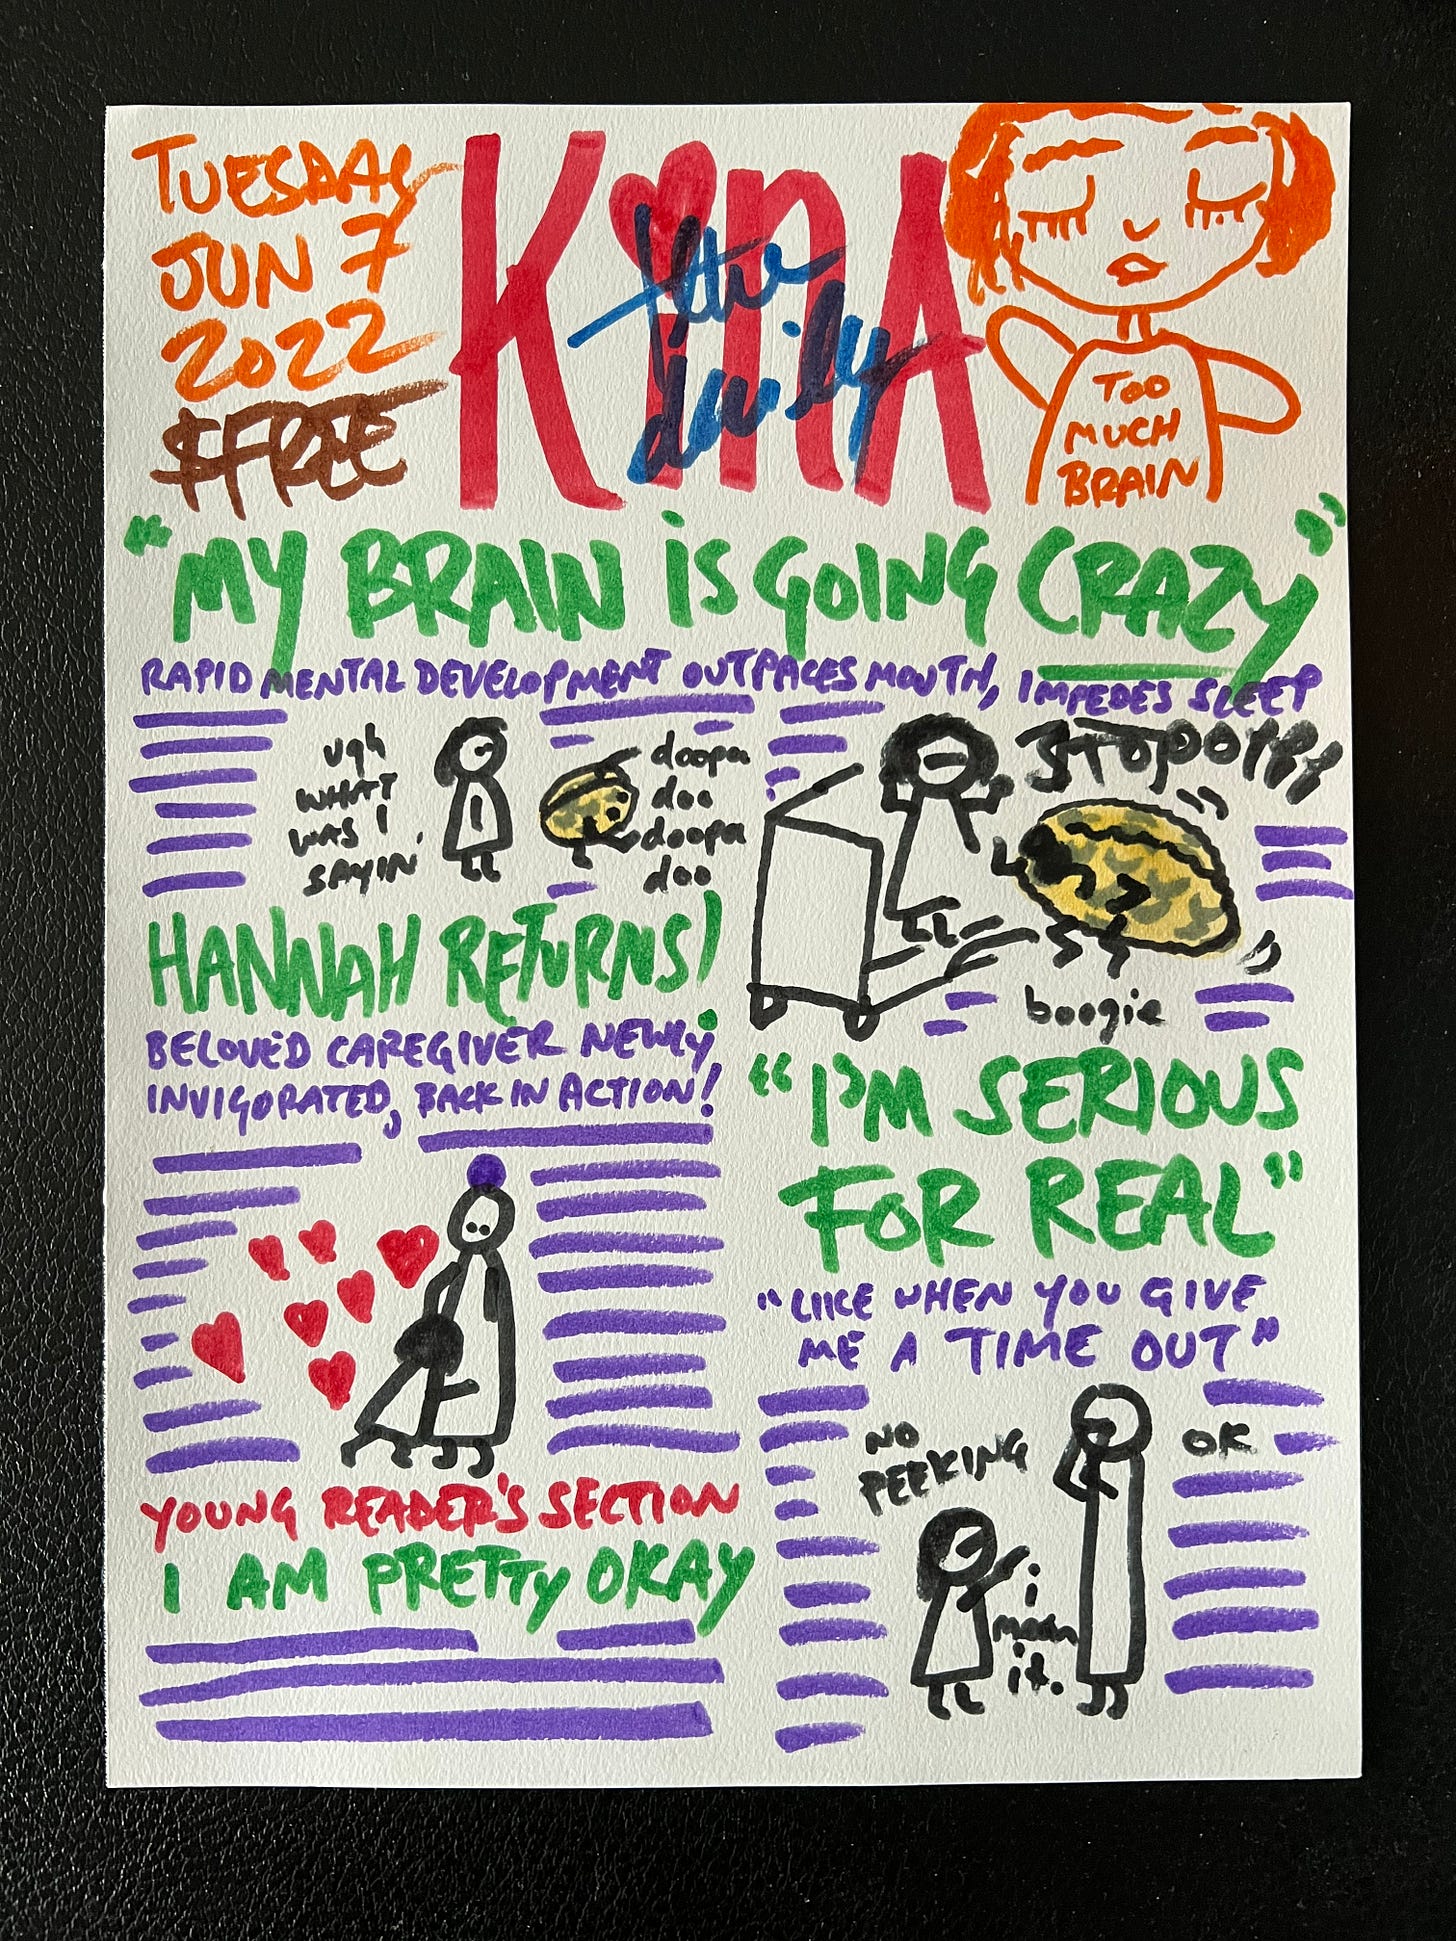 TUESDAY
JUN 7
2022
$FREE
KiNA
the
daily
TOO
MUCH
BRAIN
"MY BRAIN iS GOING CRAZY"
RAPID MENTAL DEVELOPMENT OUTPACES MOUTH, IMPEDES SLEEP
ugh
WHAT
WAS I
SAYIN'
doopa
doo
doopa
doo
boogie
HANNAH RETURNS!
BELOVED CAREGIVER NEWLY
INVIGORATED, BACK IN ACTION!
"I'M SERIOUS
FOR REAL"
"LIKE WHEN YOU GIVE
ME A TIME OUT"
NO
PEEKING
OK
i
mean
it.
YOUNG READER'S SECTION
I AM PRETTY OKAY